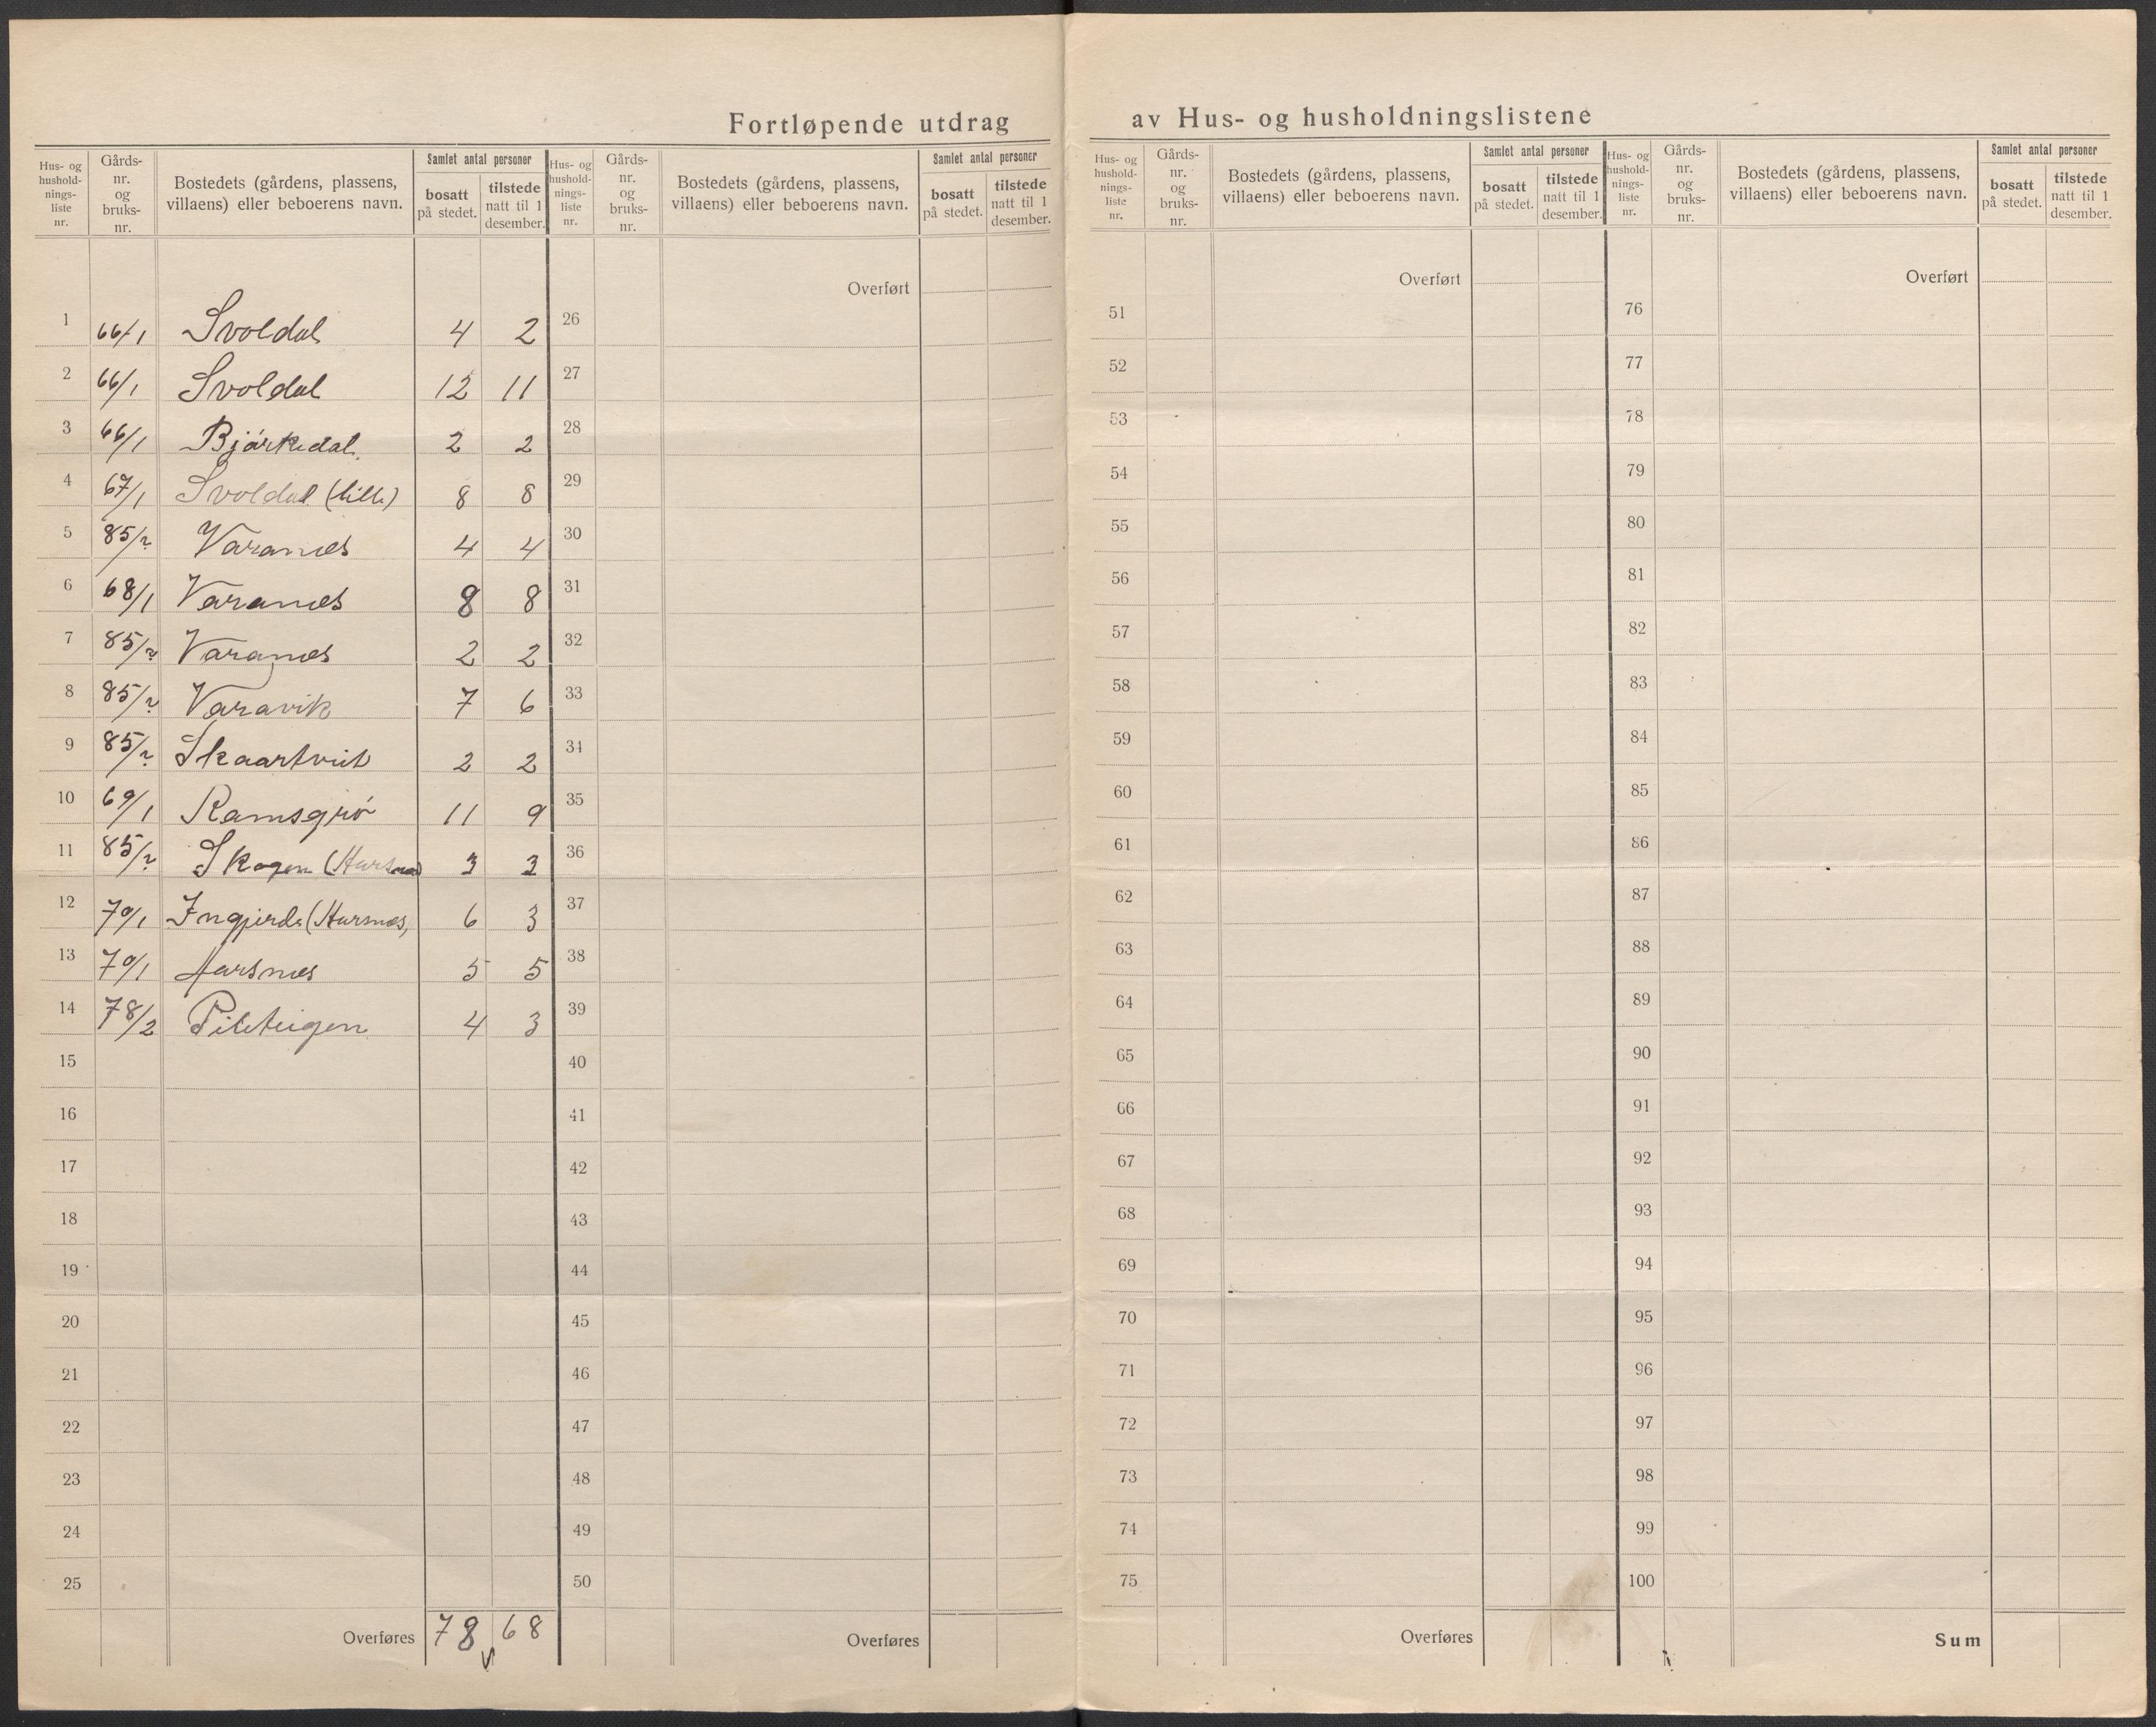 Fortløpende utdrag av Hus- og husholdningslistene
Hus- og hushold-nings-liste nr. | Gårds-nr. og bruks-nr. | Bostedets (gårdens, plassens, villaens) eller beboerens navn. | Samlet antal personer | bosatt på stedet. | tilstede natt til 1 desember.
1 66/1 Svoldal 4 2
2 66/1 Svoldal 12 11
3 66/1 Björkedal. 2 2
4 67/1 Svoldal (lille) 8 8
5 85/? Varanæs 4 4
6 68/1 Varanæs 8 8
7 85/? Varanæs 2 2
8 85/? Varavik 7 6
9 85/? Skaartveit 2 2
10 69/1 Ramsgrö 11 9
11 85/? Skogen 3 3
12 70/1 6 3
13 70/1 Aarsnæs 5 5
14 78/2 4 3
15
16
17
18
19
20
21
22
23
24
25
Overføres 78 68
Hus- og hushold-nings-liste nr. | Gårds-nr. og bruks-nr. | Bostedets (gårdens, plassens, villaens) eller beboerens navn. | Samlet antal personer | bosatt på stedet. | tilstede natt til 1 desember.
Overført
26
27
28
29
30
31
32
33
34
35
36
37
38
39
40
41
42
43
44
45
46
47
48
49
50
Overføres
Hus- og hushold-nings-liste nr. | Gårds-nr. og bruks-nr. | Bostedets (gårdens, plassens, villaens) eller beboerens navn. | Samlet antal personer | bosatt på stedet. | tilstede natt til 1 desember.
Overført
51
52
53
54
55
56
57
58
59
60
61
62
63
64
65
66
67
68
69
70
71
72
73
74
75
Overføres
Hus- og hushold-nings-liste nr. | Gårds-nr. og bruks-nr. | Bostedets (gårdens, plassens, villaens) eller beboerens navn. | Samlet antal personer | bosatt på stedet. | tilstede natt til 1 desember.
Overført
76
77
78
79
80
81
82
83
84
85
86
87
88
89
90
91
92
93
94
95
96
97
98
99
100
Sum